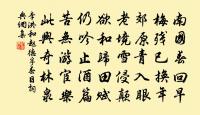 南國春回早
梅殘已換年
郊原青入眼
老境雪侵顛
欲和歸田賦
仍吟止酒篇
苦無游宦樂
此興寄林泉
李洪和趙德莊春日詞